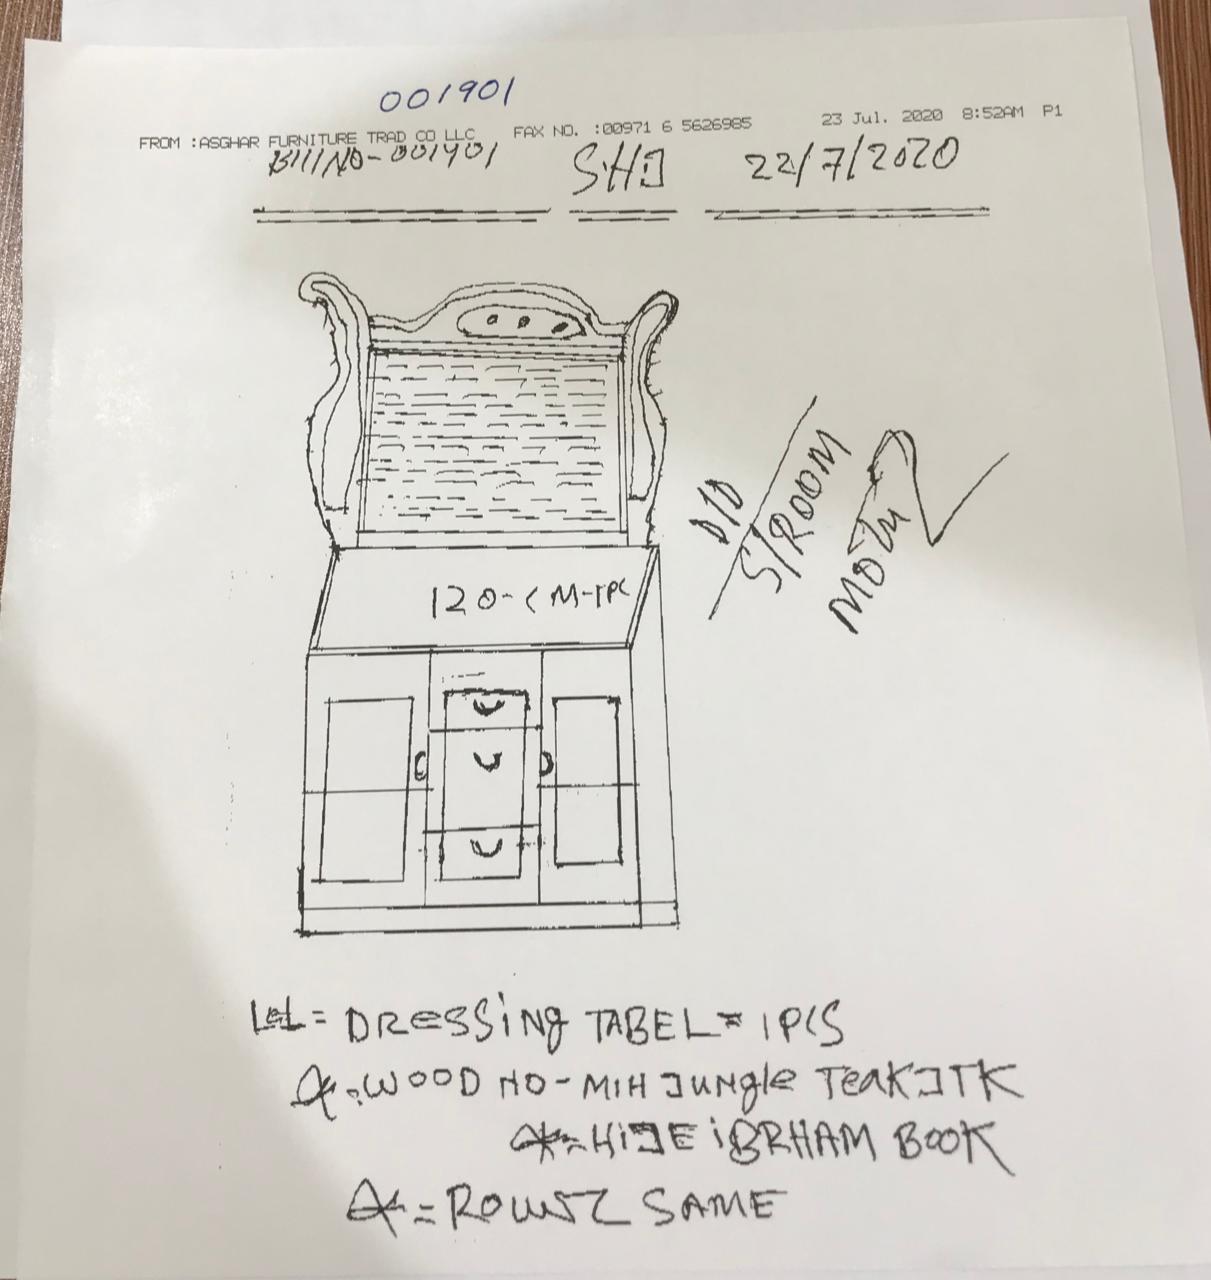 001901
FROM :ASGHAR FURNITURE TRAD CO LLC FAX NO. :00971 6 5626985 23 Jul. 2020 8:52AM P1
Bill NO-001901 SHJ 22/7/2020
D/D
S/ROOM
120-CM-1PC
= DRESSiNg TABEL = 1PCS
WOOD NO-MIH JUNgle TeaK JTK
= HIJE iBRHAM BOOK
= SAME